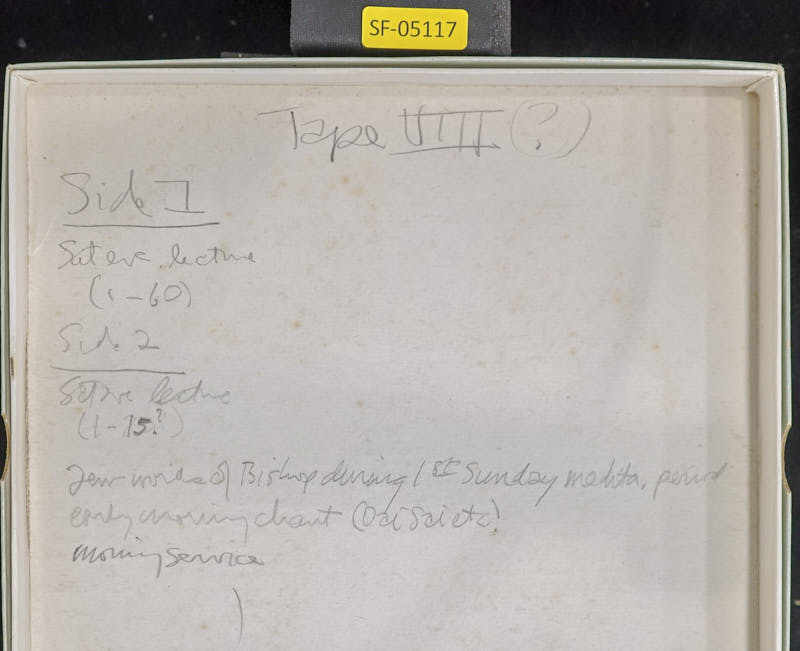 SF-05117
Tape VIII (?)
Side 1
Sat eve lecture
(1-60)
Side 2
Sat eve lecture
(1-15?)
Few words of Bishop during 1st Sunday medita. period
early morning chant (Dai Sai etc)
morning service
)